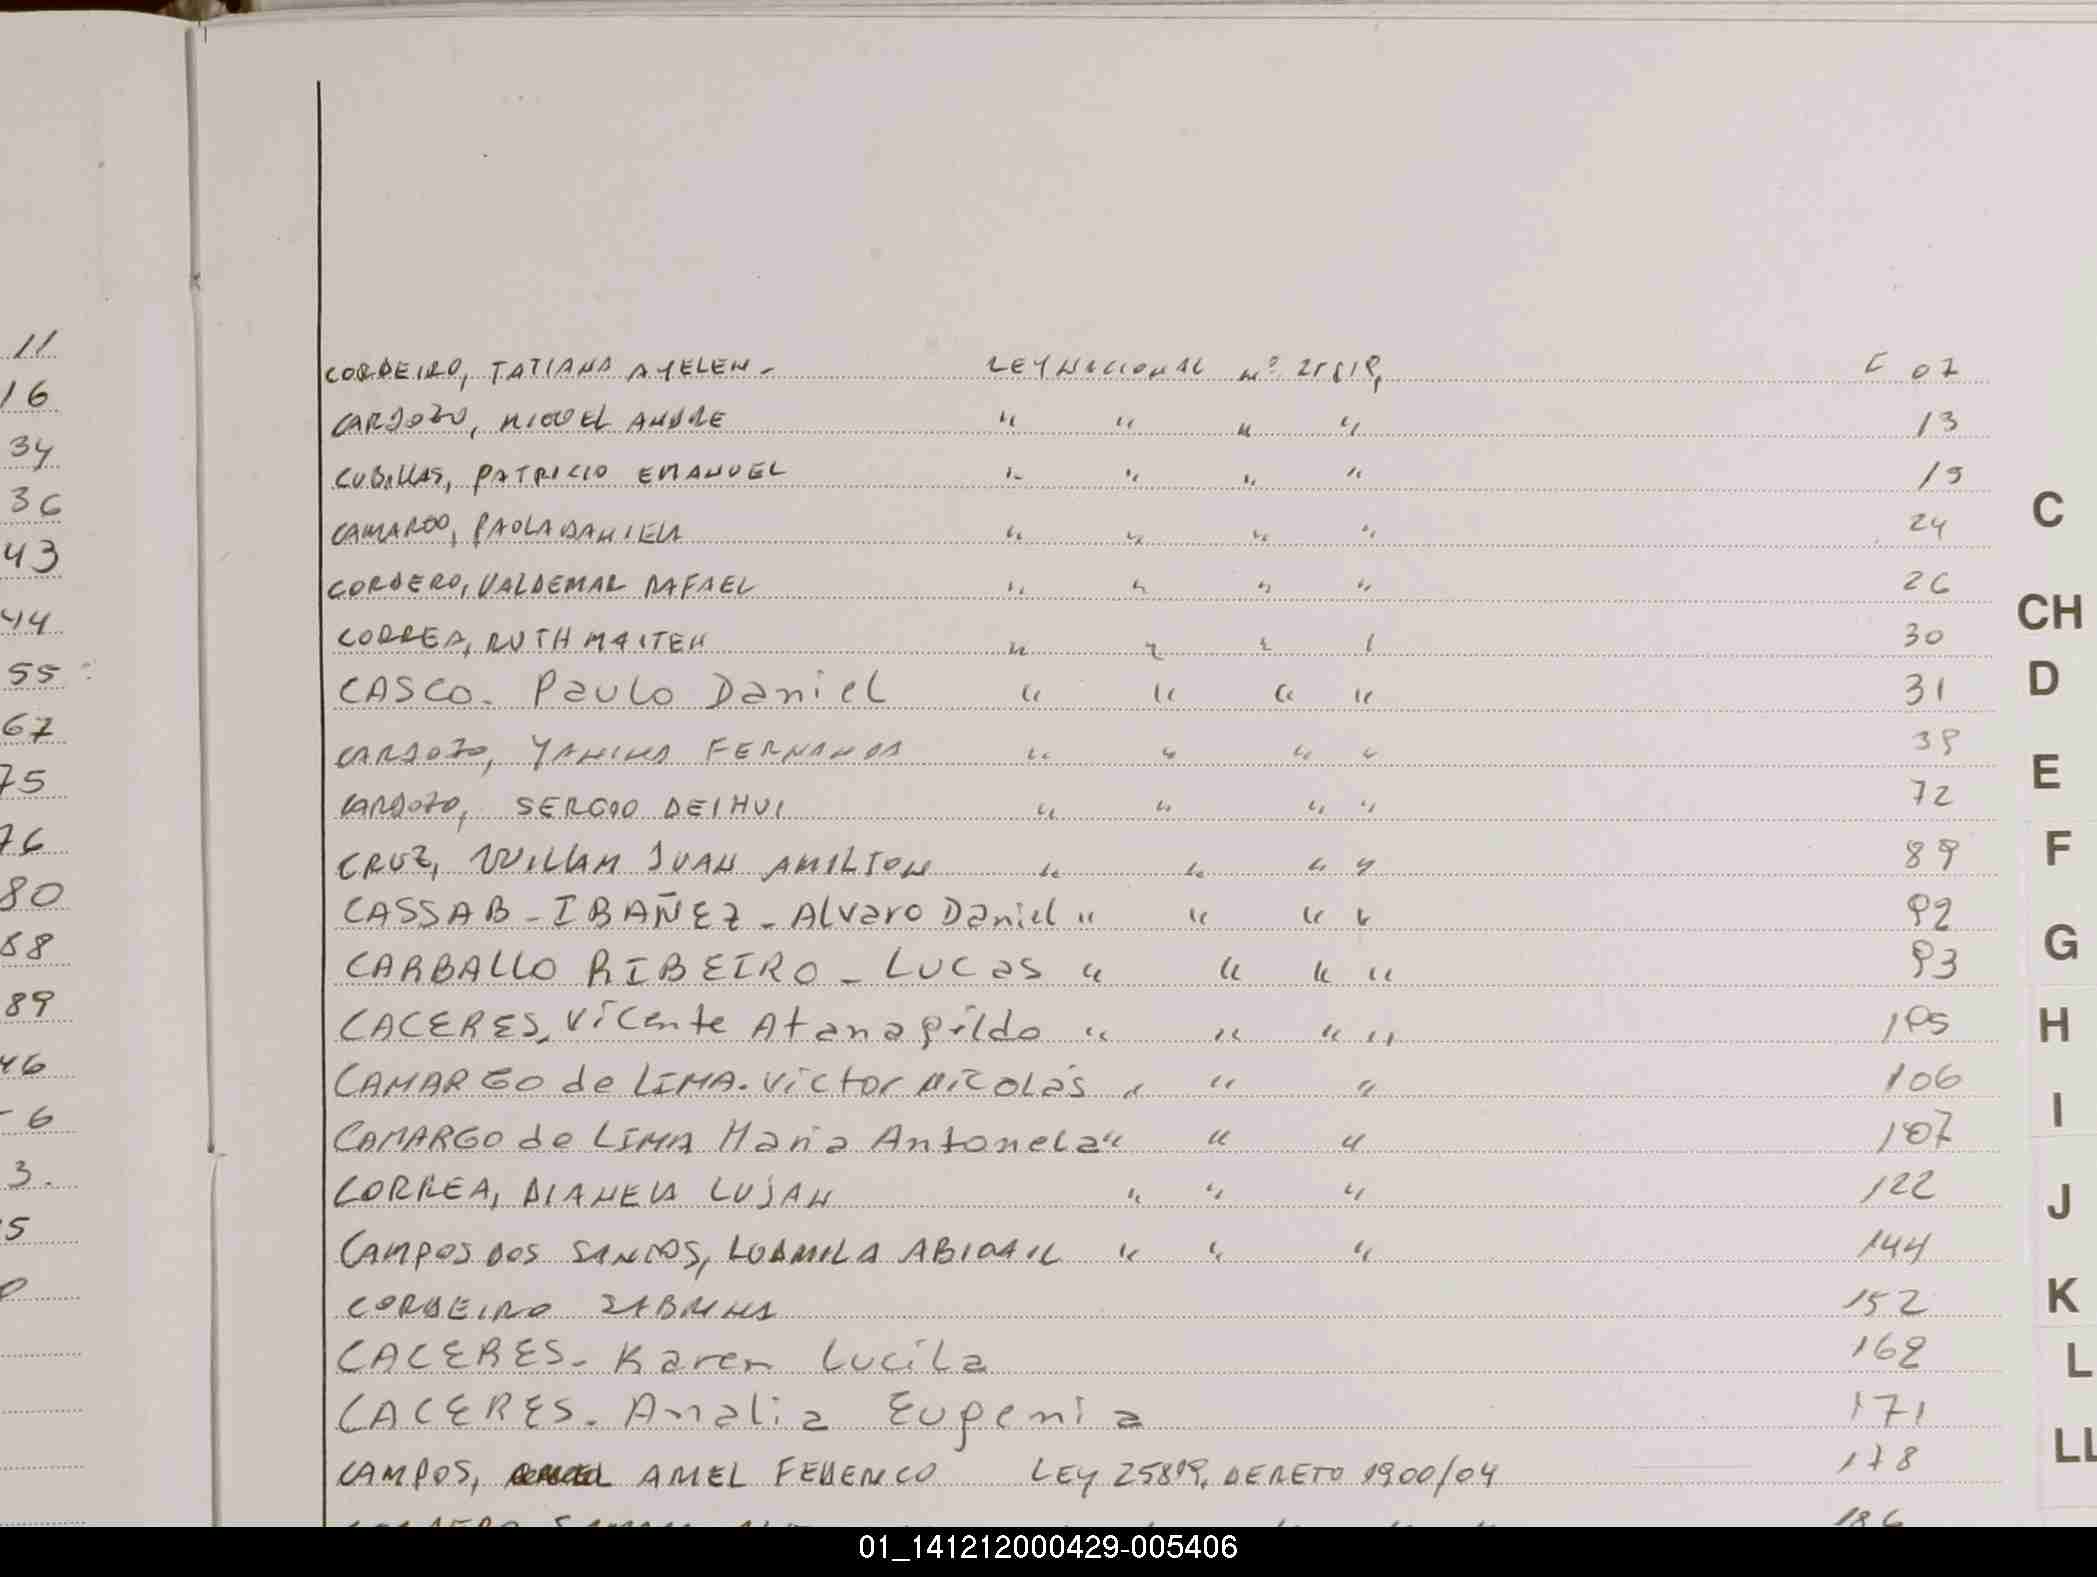 11
16
34
36
43
44
55
67
75
76
80
88
89
46
6
3.
5
CORDEIRO, TATIANA AYELEN - LEY NACIONAL Nº 25819, 07
CARDOZO, MIGUEL ANDRE " " " " 13
CUBILLAS, PATRICIO EMANUEL " " " " 19
CAMARGO, PAOLA DANIELA " " " " 24
CORDERO, VALDEMAR RAFAEL " " " " 26
CORREA, RUTH MAITEN " " " " 30
CASCO. Paulo Daniel " " " " 31
CARDOZO, YANINA FERNANDA " " " " 39
CARDOZO, SERGIO DEIHUI " " " " 72
CRUZ, WILLAM JUAN AMILTON " " " " 89
CASSAB - IBAÑEZ - Alvaro Daniel " " " " 92
CARBALLO RIBEIRO - Lucas " " " " 93
CACERES. Vicente Atanagildo " " " " 105
CAMARGO de LIMA. Victor Nicolás " " " 106
CAMARGO de LIMA Maria Antonela " " " 107
CORREA, DIANELA LUJAN " " " 122
CAMPOS DOS SANTOS, LUDMILA ABIGAIL " " " 144
CORDEIRO SABRINA 152
CACERES - Karen Lucila 162
CACERES. Analia Eugenia 171
CAMPOS, ARIEL FEDERICO LEY 25819, DECRETO 1900/04 178
186
C
CH
D
E
F
G
H
I
J
K
L
LL
01_141212000429-005406